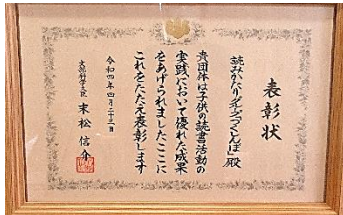 表彰状
読み聞かせグループつくしんぼ殿
貴団体は子供の読書活動の
実践において優れた成果
をあげられましたここに
これをたたえ表彰します
令和四年四月二十三日
文部科学大臣 末松信介